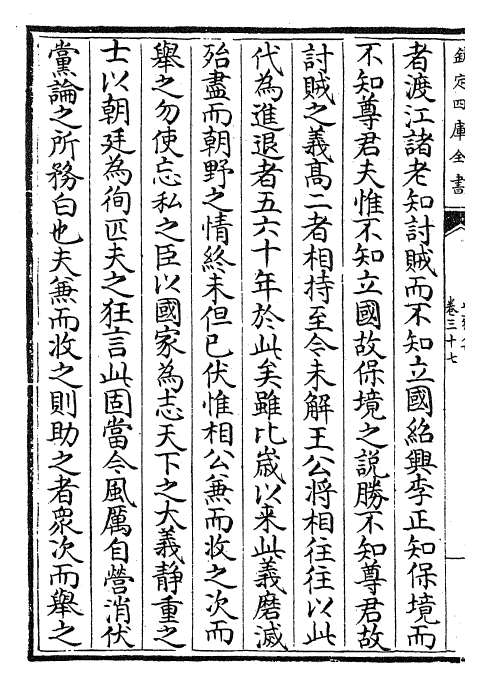 欽定四庫全書
卷三十七
者渡江諸老知討賊而不知立國紹興李正知保境而
不知尊君夫惟不知立國故保境之説勝不知尊君故
討賊之義髙二者相持至今未解王公將相往往以此
代為進退者五六十年於此矣雖比歳以来此義磨滅
殆盡而朝野之情終未但已伏惟相公兼而收之次而
舉之勿使忘私之臣以國家為志天下之大義静重之
士以朝廷為徇匹夫之狂言此固當今風厲自營消伏
黨論之所務白也夫兼而收之則助之者衆次而舉之